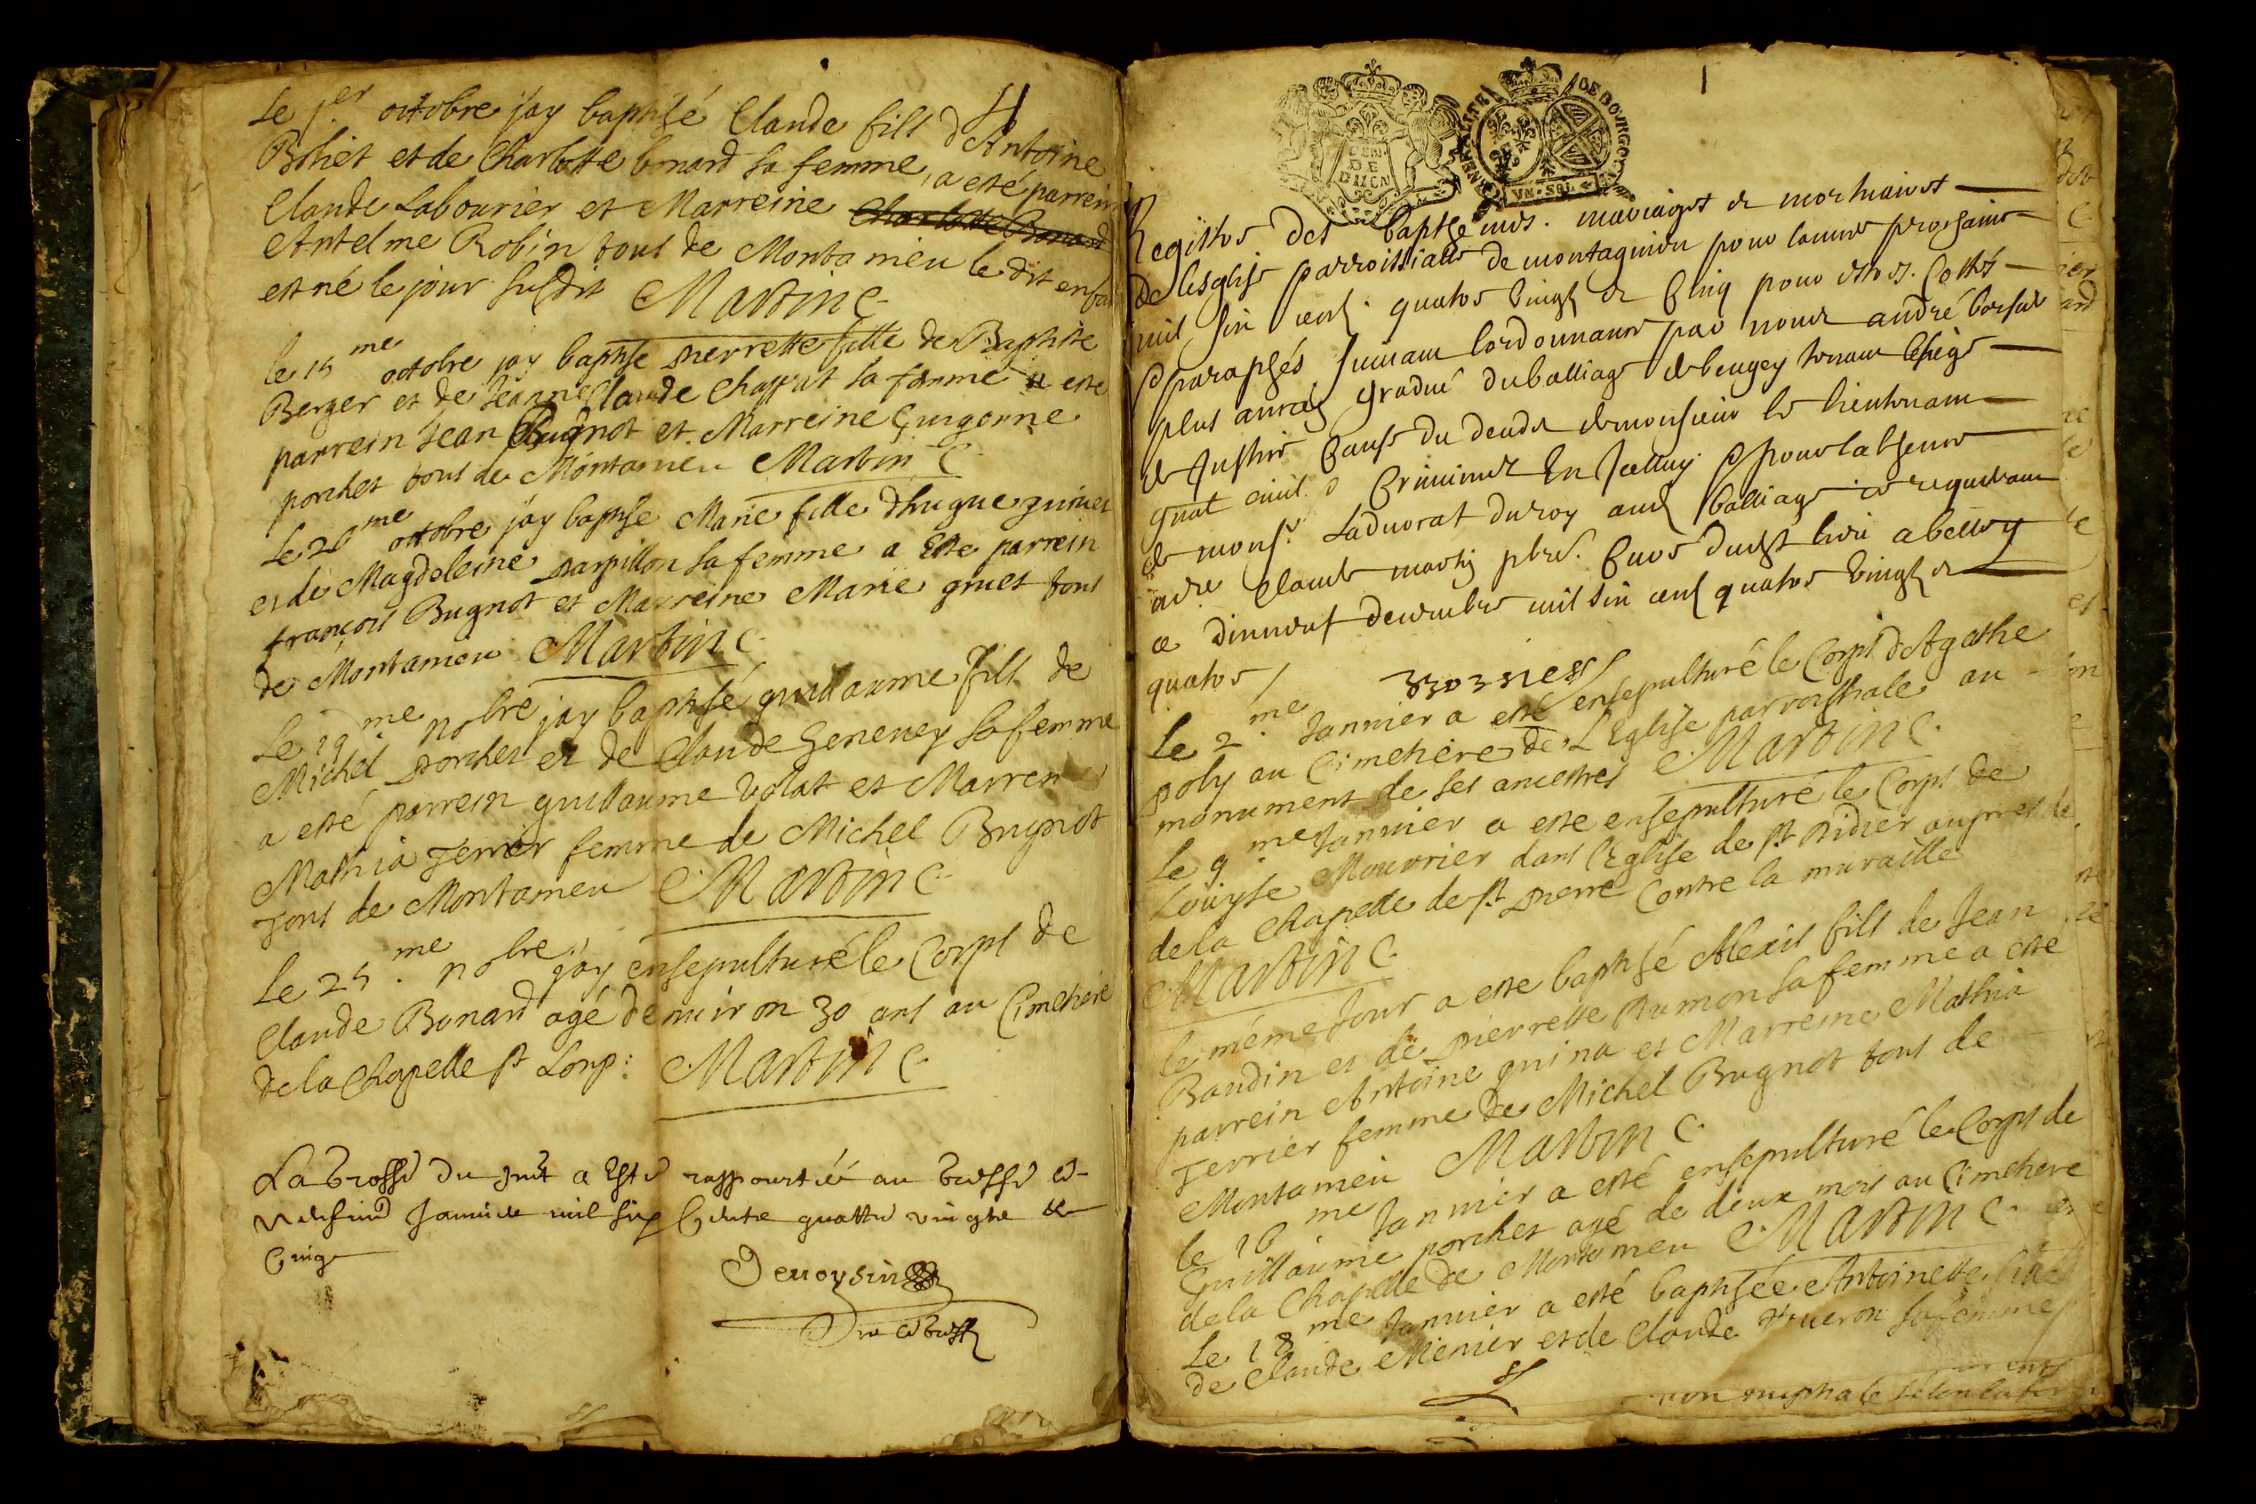 4
Le 1.er octobre jay baptisé Claude fils d'Antoine
Bohet et de Charlotte bonard sa femme, a esté parrein
Claude Labourier et Marreine Charlotte Bonard
Antelme Robin tous de Montameu le dit enfa
est né le jour susdit Martin C.
le 15 me octobre jay baptise pierrette fille de Baptiste
Berger et de Jeanne Claude Chappat sa femme a esté
parrein Jean Bugnot et Marreine Guigonne
porchet tous de Montameu Martin C.
Le 28 me octobre jay baptise Marie fille d'hugue
et de Magdeleine parpillon sa femme a Esté parrein
françois Bugnot et Marreine Marie gruet tous
de Montameu Martin C.
Le 19 me nobre jay baptisé guillaume fils de
Michel porchet et de Claude Genevey sa femme
a esté parrein guillaume Volat et Marrein
Mathia Terrier femme de Michel Bugnot
Tous de Montameu Martin C.
Le 25. me nobre jay ensepulturé le Corps de
Claude Bonard agé denviron 30 ans au Cimetiere
de la Chapelle st Loup: Martin C.
La Grosse du a Esté rapportéé au Greffe
Janvier mil six Cents quattre vingts &
Cinq
Devoysin
1
GEN.
DE
DIION
GENERALITE DE BOURGOGNE
VN. SOL
Registre des baptesmes. mariages et mortuaires
de lesglise parroissialle de montagnieu pour lannée prochaine
mil six cents quatre vingts et Cinq pour estre Cottés
& paraphés suivant lordonnance par nous andré
plus antien gradué du balliage de beugey tenant le siege
de Justice Cause du deceds de monsieur le lieutenant
gnal civil & Criminel En Jcelluy & pour labsence
de monsr. Ladvocat du roy aud balliage ce requerant
mre Claude martin pbre. Curé dudit lieu a belley
ce dixneuf decembre mil six cens quatre vingts et
quatre /
Le 2. me Janvier a esté ensepulturé le Corps d'Agathe
poly au Cimetiere de L'Eglise parroissiale au
monument de ses ancestres Martin C.
Le 9 me Janvier a esté ensepulturé le Corps de
Louyse Mouvrier dans l'Eglise de st Didier aupres de
de la Chapelle de st pierre Contre la muraille
Martin C.
le méme Jour a esté baptisé Alexis fils de Jean
Baudin et de pierrette Dumon sa femme a esté
parrein Antoine guina et Marreine Mathia
Terrier femme de Michel Bugnot tous de
Montameu Martin C.
le 16 me Janvier a esté ensepulturé le Corps de
Guillaume porchet agé de deux mois au Cimetiere
de la Chapelle de Montameu Martin C.
Le 18 me Janvier a esté baptisée Antoinette fille
de Claude Menier et de Claude sa femme